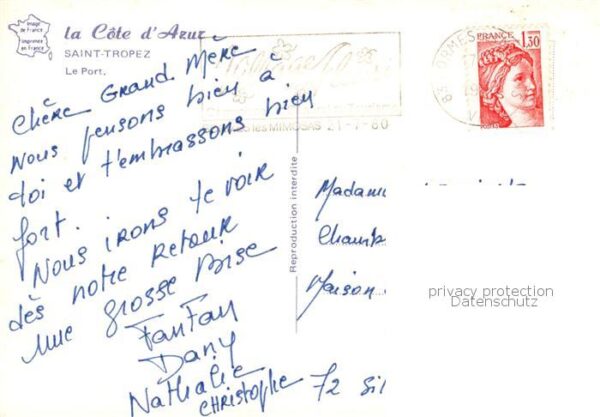 Image de France
Imprimée en France
la Côte d'Azur
SAINT-TROPEZ
Le Port.
Chère Grand Mère
Nous pensons bien à
toi et t'embrassons bien
fort.
Nous irons te voir
dès notre Retour
une grosse Bise
FanFan
Dany
Nathalie
christophe
les MIMOSAS 21-7-80
83 ORMES
FRANCE
1,30
Reproduction interdite
Madam
Chamb
Maison
72 Sil
privacy protection
Datenschutz